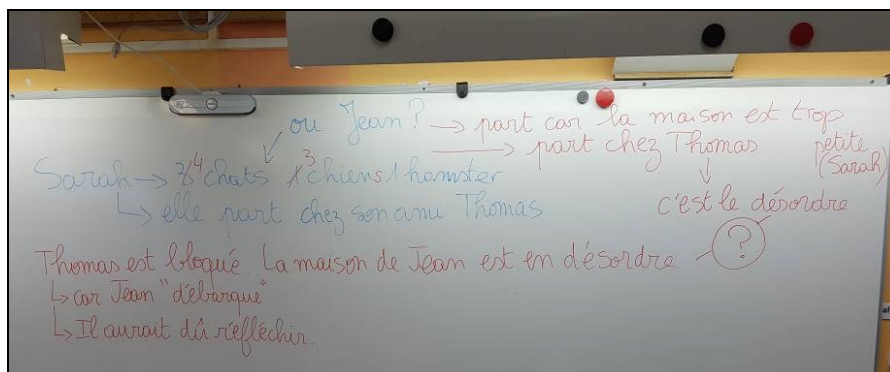 ou Jean? → part car la maison est trop petite (Sarah)
→ part chez Thomas
Sarah → 4 chats 3 chiens 1 hamster
↳ elle part chez son ami Thomas
c'est le désordre
Thomas est bloqué. La maison de Jean est en désordre ?
↳ car Jean "débarque"
↳ Il aurait dû réfléchir.